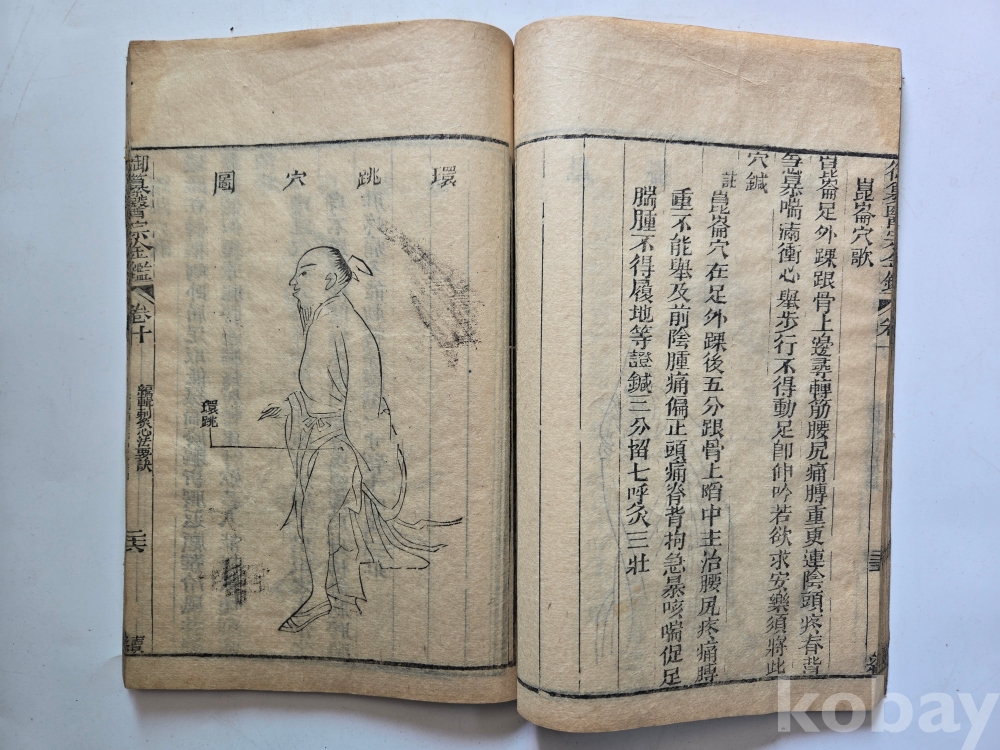 崑崙穴歌
崑崙足外踝跟骨上邊尋轉筋腰尻痛膊重更連陰頭疼脊背
急暴喘滿衝心舉步行不得動足即呻吟若欲求安樂須將此
穴鍼
註
崑崙穴在足外踝後五分跟骨上陷中主治腰尻疼痛膊
重不能舉及前陰腫痛偏正頭痛脊背拘急暴咳喘促足
腨腫不得履地等證鍼三分留七呼灸三壯
環跳穴圖
環跳
御纂醫宗金鑑
卷十
編輯刺灸心法要訣
kobay